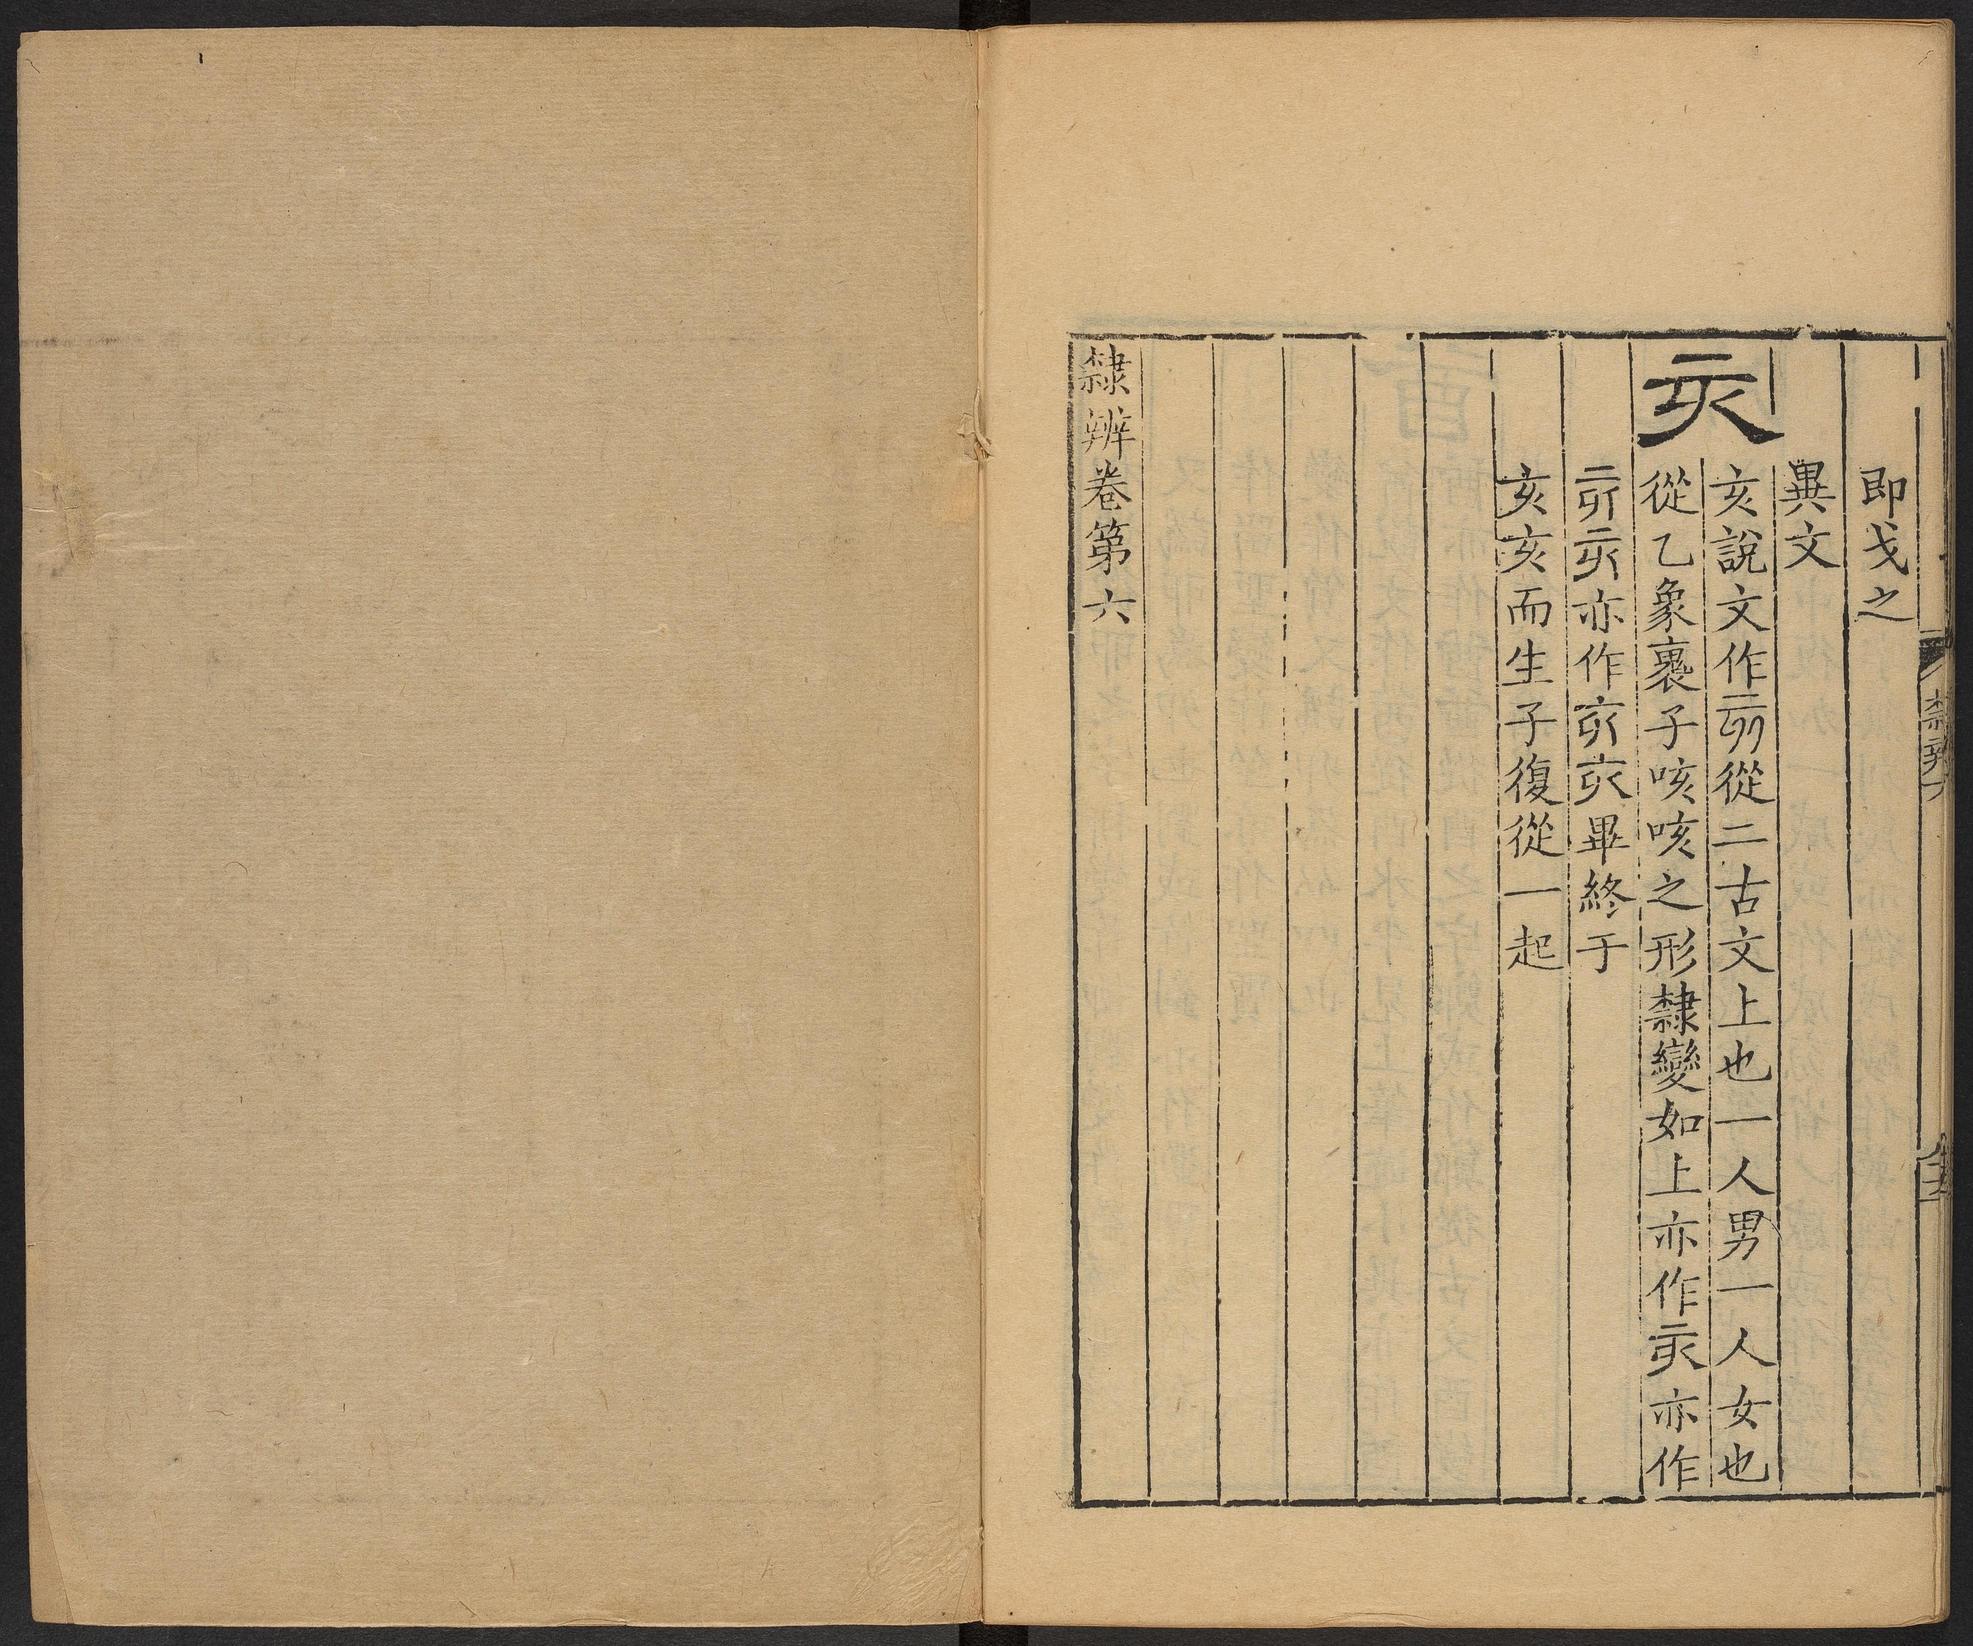 即戈之
異文
亥
亥說文作𠀅從二古文上也一人男一人女也
從乙象裹子咳咳之形隸變如上亦作亥亦作
亦作亥亥畢終于
亥亥而生子復從一起
隸辨卷第六
隸辨六